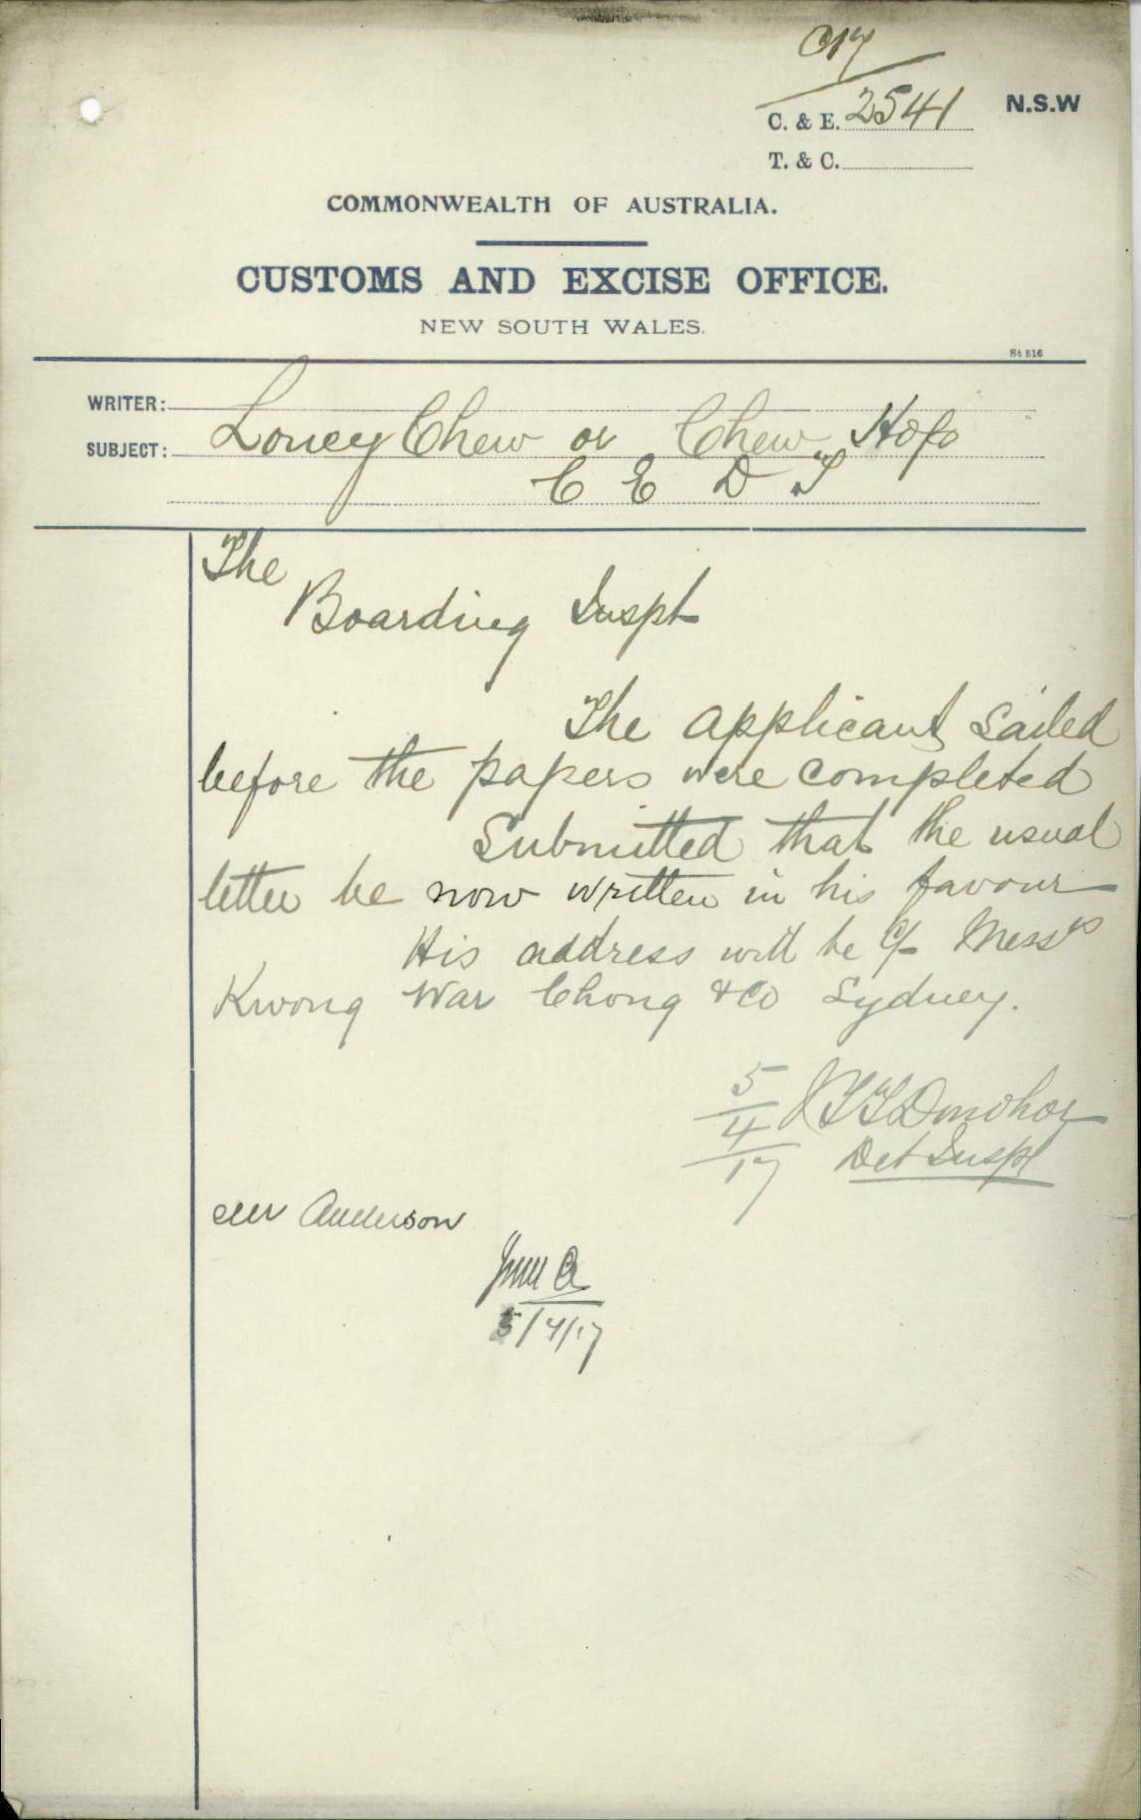 C17
C. & E. 2541
N.S.W
T. & C.
COMMONWEALTH OF AUSTRALIA.
CUSTOMS AND EXCISE OFFICE.
NEW SOUTH WALES.
WRITER:
SUBJECT: Loney Chew or Chew Hop
C E D T
The
Boarding Inspt
The applicant sailed
before the papers were completed
Submitted that the usual
letter be now written in his favour
His address will be c/o Messrs
Kwong War Chong & Co Sydney.
5/4/17 JTT Donohoe
Det Inspt
Mr Anderson
5/4/17